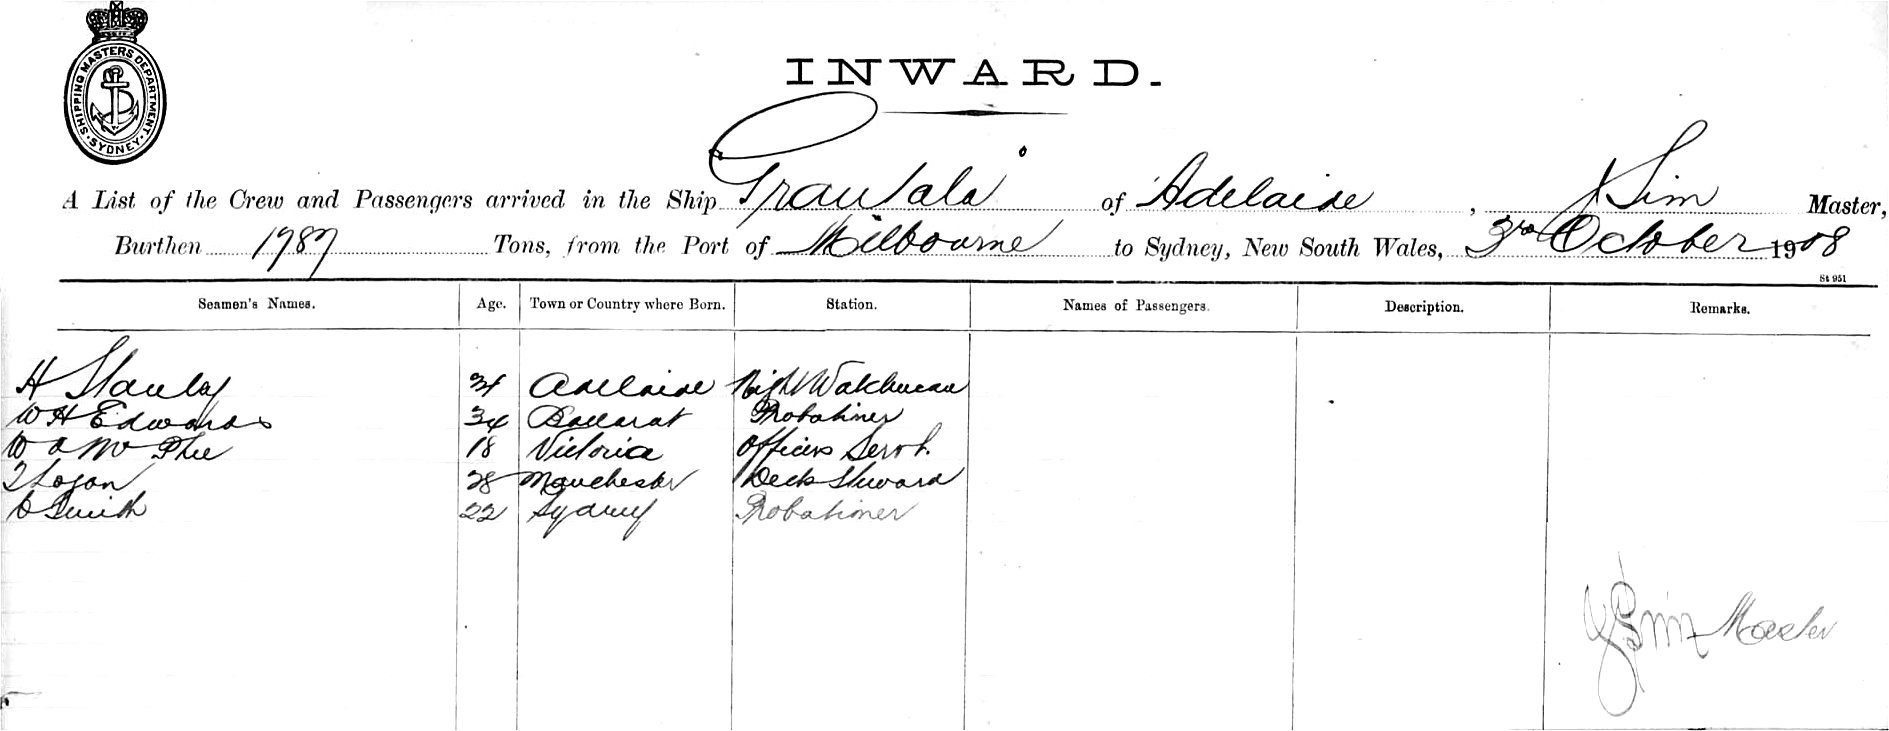 SHIPPING MASTERS DEPARTMENT
SYDNEY
INWARD.
A List of the Crew and Passengers arrived in the Ship Grantala of Adelaide, J Sim Master,
Burthen 1787 Tons, from the Port of Melbourne to Sydney, New South Wales, 3rd October 1908
St 951
Seamen's Names. Age. Town or Country where Born. Station. Names of Passengers. Description. Remarks.
H Stanley Adelaide Night Watchman
W H Edwards 34 Ballarat Probationer
W A Mc Phee 18 Victoria Officers Servt.
T Logan 28 Manchester Deck Steward
Smith 22 Sydney Probationer
Sim Master